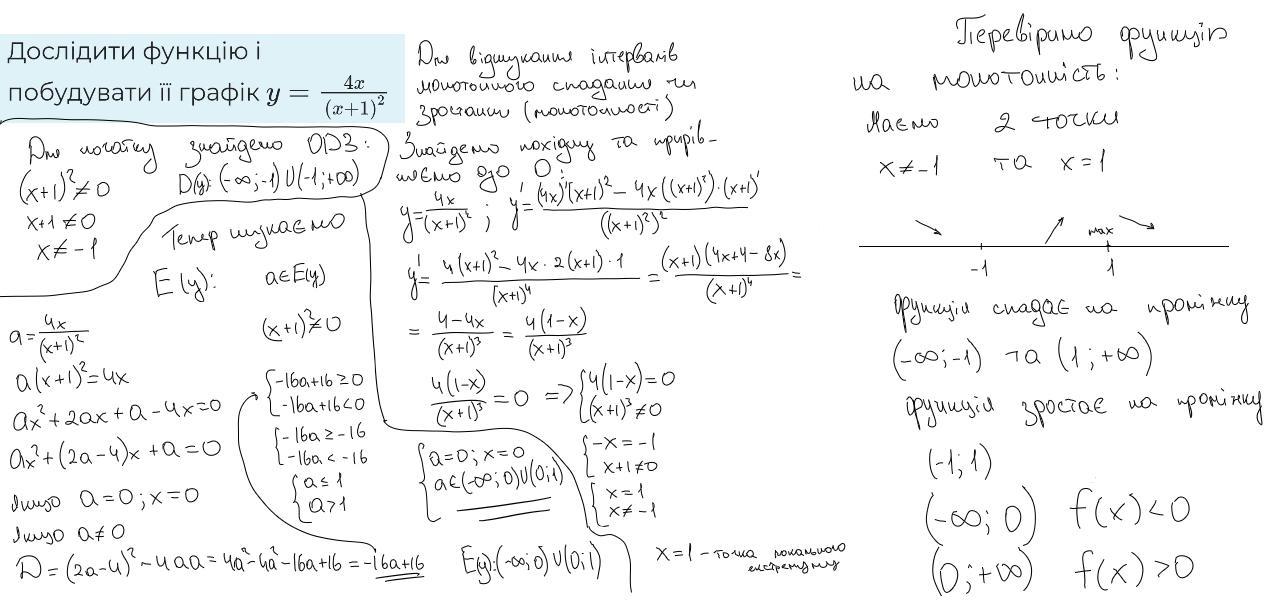 Дослідити функцію і
побудувати її графік y = 4x/(x+1)²
Для початку знайдемо ОДЗ:
(x+1)²≠0 D(y): (-∞;-1)∪(-1;+∞)
x+1≠0
x≠-1
Тепер шукаємо
E(y): a∈E(y)
a = 4x/(x+1)² (x+1)²≠0
a(x+1)²=4x
ax²+2ax+a-4x=0
ax²+(2a-4)x+a=0
якщо a=0; x=0
якщо a≠0
D=(2a-4)²-4aa=4a²-4a²-16a+16=-16a+16
{-16a+16≥0
-16a+16<0
{-16a≥-16
-16a<-16
{a≤1
a>1
{a=0; x=0
a∈(-∞;0)∪(0;1)
E(y):(-∞;0)∪(0;1)
Для відшукання інтервалів
монотонного спадання чи
зростання (монотонності)
Знайдемо похідну та прирів-
няємо до 0:
y=4x/(x+1)²; y'=((4x)'(x+1)²-4x((x+1)²)·(x+1)')/((x+1)²)²
y'=(4(x+1)²-4x·2(x+1)·1)/(x+1)⁴=((x+1)(4x+4-8x))/(x+1)⁴=
=(4-4x)/(x+1)³=4(1-x)/(x+1)³
4(1-x)/(x+1)³=0 => {4(1-x)=0
(x+1)³≠0
{-x=-1
x+1≠0
{x=1
x≠-1
x=1 - точка локального
екстремуму
Перевіримо функцію
на монотонність:
Маємо 2 точки
x≠-1 та x=1
max
-1 1
Функція спадає на проміжку
(-∞;-1) та (1;+∞)
Функція зростає на проміжку
(-1;1)
(-∞;0) f(x)<0
(0;+∞) f(x)>0